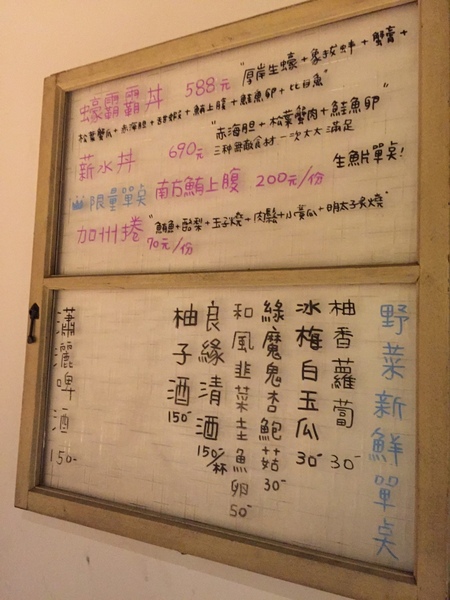 蠔霸霸丼 588元 "厚岸生蠔+象拔蚌+蟹膏+
松葉蟹爪+赤海胆+甜蝦+鮪上腹+鮭魚卵+比目魚"
薪水丼 690元 "赤海胆+松葉蟹肉+鮭魚卵"
三種無敵食材一次大大滿足
限量單点 南方鮪上腹 200元/份 生魚片單点!
加州捲 "鮪魚+酪梨+玉子燒+肉鬆+小黃瓜+明太子炙燒"
70元/份
野菜新鮮單点
柚香蘿蔔 30-
冰梅白玉瓜 30-
綠魔鬼杏鮑菇 30-
和風韭菜韭魚卵 50-
良緣清酒 150-/杯
柚子酒 150-
瀟灑啤酒 150-